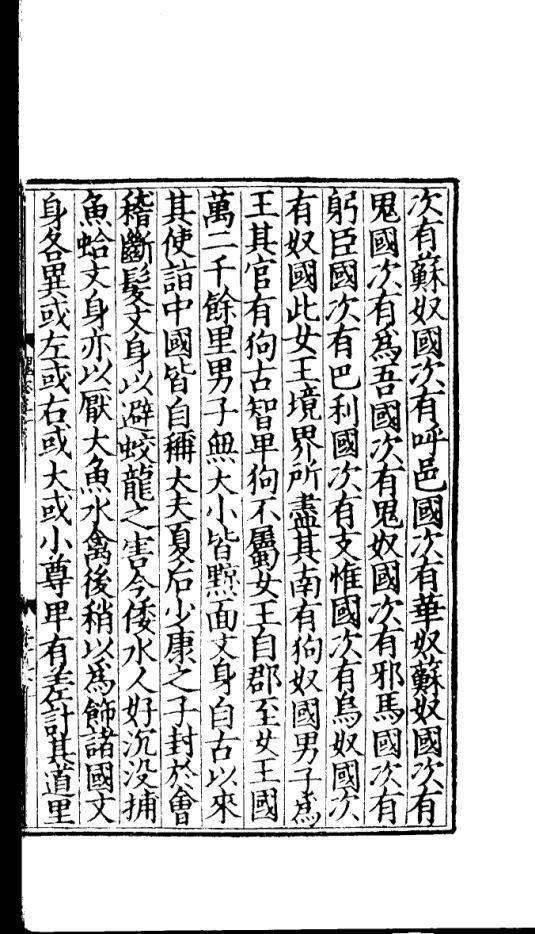 次有蘇奴國次有呼邑國次有華奴蘇奴國次有
鬼國次有爲吾國次有鬼奴國次有邪馬國次有
躬臣國次有巴利國次有支惟國次有烏奴國次
有奴國此女王境界所盡其南有狗奴國男子爲
王其官有狗古智卑狗不屬女王自郡至女王國
萬二千餘里男子無大小皆黥面文身自古以來
其使詣中國皆自稱大夫夏后少康之子封於會
稽斷髮文身以避蛟龍之害今倭水人好沉没捕
魚蛤文身亦以厭大魚水禽後稍以爲飾諸國文
身各異或左或右或大或小尊卑有差計其道里